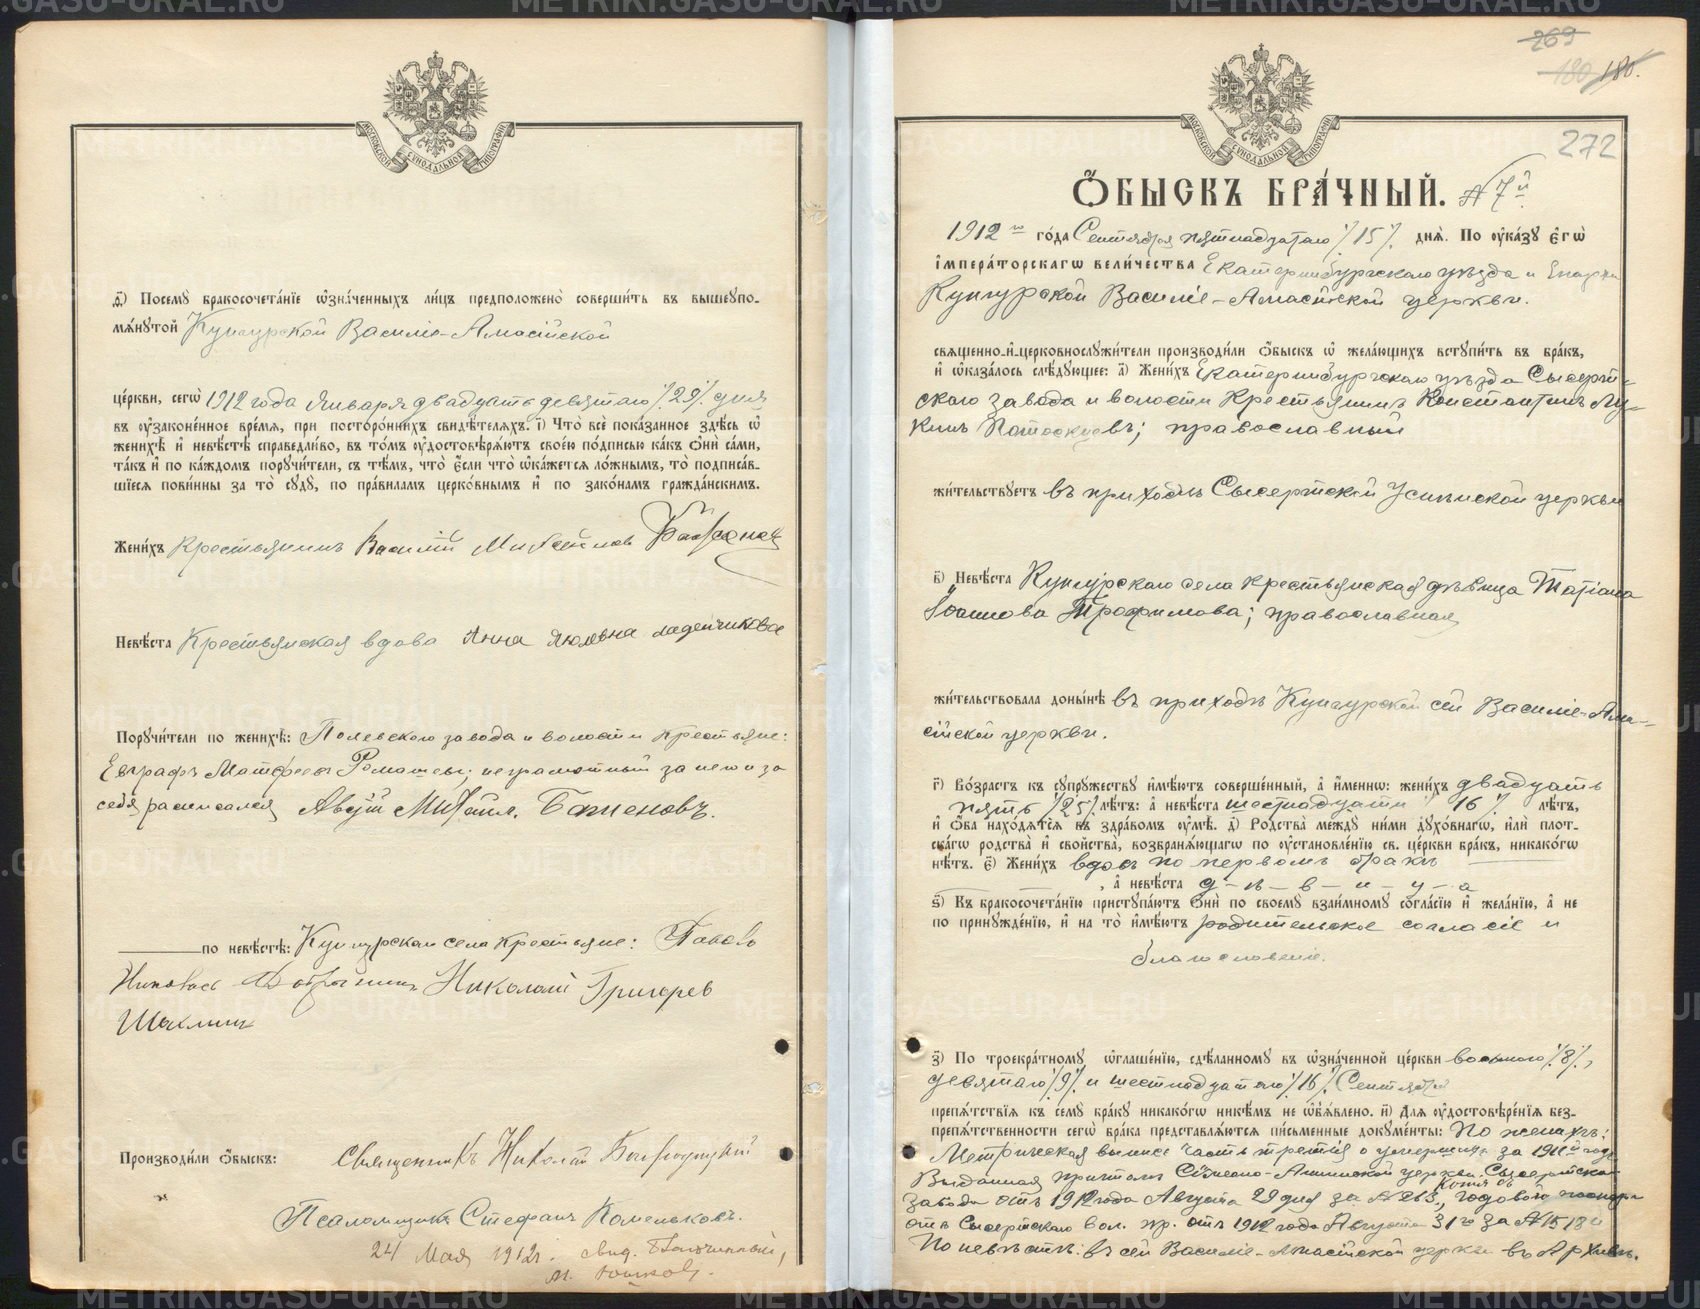 МОСКОВСКОЙ СѴНОДАЛЬНОЙ ТИПОГРАФІИ
д҃і) Посемꙋ бракосочета́нїе ѡ҆зна́ченныхъ ли́цъ предположено̀ соверши́ть въ вышеупо-
мѧ́нꙋтой Кунгурской Василіе-Амасійской
це́ркви, сегѡ̀ 1912 года Января двадцать девятаго /29/ дня
въ ᲂу҆зако́ненное вре́мѧ, при посторо́ннихъ свидѣ́телѧхъ. і҃) Что̀ всѐ пока́занное здѣ́сь ѡ҆
женихѣ̀ и҆ невѣ́стѣ справедли́во, въ то́мъ ᲂу҆достовѣрѧ́ютъ свое́ю по́дписью ка́къ ѻ҆нѝ са́ми,
та́къ и҆ по ка́ждомъ порꙋчи́тели, съ тѣ́мъ, что̀ є҆́сли что̀ ѡ҆ка́жетсѧ ло́жнымъ, то̀ подписа́в-
шїесѧ пови́нны за то̀ сꙋдꙋ̀, по пра́виламъ церко́внымъ и҆ по зако́намъ гражда́нскимъ.
Жени́хъ Крестьянинъ Василій Михайлов
Невѣ́ста Крестьянская вдова Анна
Порꙋчи́тели по женихѣ̀: Полевского завода и волости крестьяне:
Евграфъ Матфеевъ неграмотный за него и за
себя расписался Михаил. Баженовъ.
по невѣ́стѣ: Кунгурскаго села крестьяне: Павелъ
Николай Григорев
Шаклинъ
Производи́ли ѻ҆́быскъ: Священникъ Николай
Псаломщикъ Стефанъ
24 Мая 1912 г. свид. Благочинный,
269
180 180.
272
МОСКОВСКОЙ СѴНОДАЛЬНОЙ ТИПОГРАФІИ
Ѻ҆́БЫСКЪ БРА́ЧНЫЙ. № 7й
1912го го́да Сентября пятнадцатаго /15/ днѧ̀. По ᲂу҆ка́зꙋ є҆гѡ̀
і҆мпера́торскагѡ вели́чества Екатеринбургскаго уѣзда и Епархіи
Кунгурской Василіе-Амасійской церкви.
свѧще́нно-и҆-церковнослꙋжи́тели производи́ли ѻ҆́быскъ ѡ҆ жела́ющихъ встꙋпи́ть въ бра́къ,
и҆ ѡ҆каза́лось слѣ́дꙋющее: а҃) Жени́хъ Екатеринбургскаго уѣзда Сысерт-
скаго завода и волости Крестьянинъ Константинъ Лу-
кинъ православный
жи́тельствꙋетъ въ приходѣ Сысертской церкви
в҃) Невѣ́ста Кунгурскаго села крестьянская дѣвица Татіана
Іоаннова Трофимова; православная
жи́тельствовала доны́нѣ въ приходѣ Кунгурской сей Василіе-Ама-
сійской церкви.
г҃) Во́зрастъ къ сꙋпрꙋ́жествꙋ и҆мѣ́ютъ соверше́нный, а҆ и҆́меннѡ: жени́хъ двадцать
пять /25/ лѣ́тъ: а҆ невѣ́ста шестнадцати /16/ лѣ́тъ,
и҆ ѻ҆́ба нахо́дѧтсѧ въ здра́вомъ ᲂу҆мѣ̀. д҃) Родства̀ мéждꙋ ни́ми дꙋхо́внагѡ, и҆лѝ плот-
ска́гѡ родства̀ и҆ сво́йства, возбранѧ́ющагѡ по ᲂу҆становле́нїю св. це́ркви бра́къ, никако́гѡ
нѣ́тъ. є҃) Жени́хъ вдовъ по первомъ бракѣ
, а҆ невѣ́ста д-ѣ-в-и-ц-а
ѕ҃) Къ бракосочета́нїю пристꙋпа́ютъ ѻ҆нѝ по своемꙋ̀ взаи́мномꙋ согла́сїю и҆ жела́нїю, а҆ не
по принꙋжде́нїю, и҆ на то̀ и҆мѣ́ютъ родительское согласіе и
благословеніе.
з҃) По троекра́тномꙋ ѡ҆глаше́нїю, сдѣ́ланномꙋ въ ѡ҆зна́ченной це́ркви восьмого /8/,
девятаго /9/ и шестнадцатаго /16/ Сентября
препѧ́тствїѧ къ семꙋ̀ бра́кꙋ никако́гѡ никѣ́мъ не ѡ҆б̾ѧ́влено. и҃) Длѧ ᲂу҆достовѣре́нїѧ без-
препѧ́тственности сегѡ̀ бра́ка представлѧ́ютсѧ пи́сьменные докꙋме́нты: По женихѣ:
Метрическая выпись часть третія о умершихъ за 1911й годъ
Выданная причтомъ Симеоно-Аннинской церкви Сысертскаго
завода отъ 1912 года Августа 29 дня за № 263, копія съ годового паспорта
отъ Сысертскаго вол. пр. отъ 1912 года Августа 31го за №
По невѣстѣ: въ сей Василіе-Амасійской церкви въ Архивѣ.
METRIKI.GASU-URAL.RU